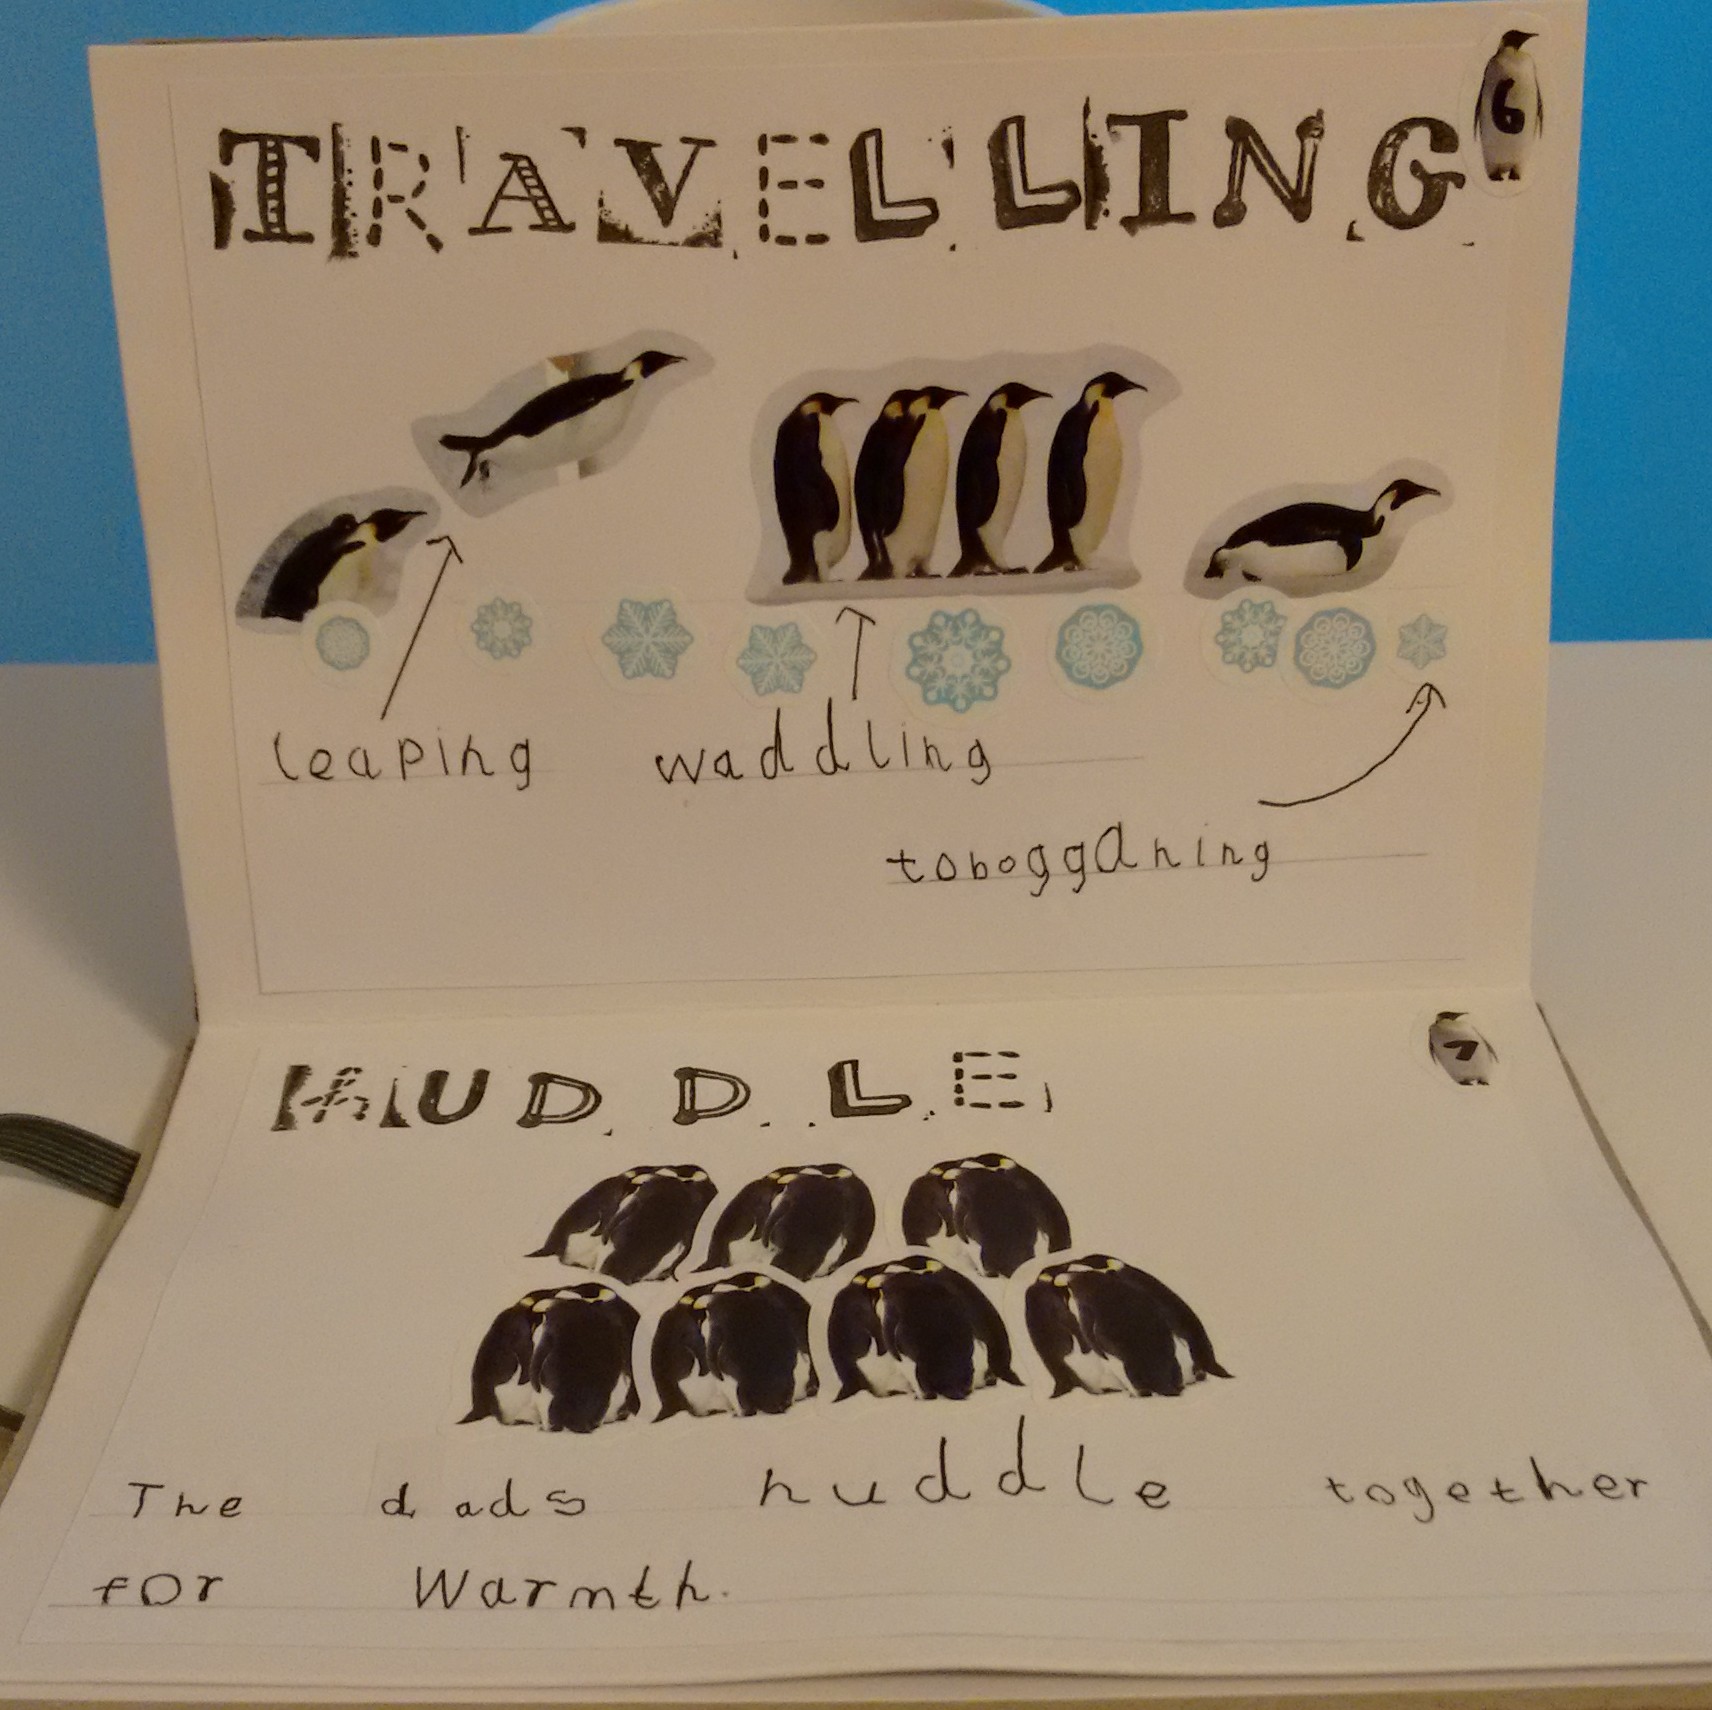 TRAVELLING
6
leaping waddling
tobogganing
HUDDLE
7
The dads huddle together
for Warmth.